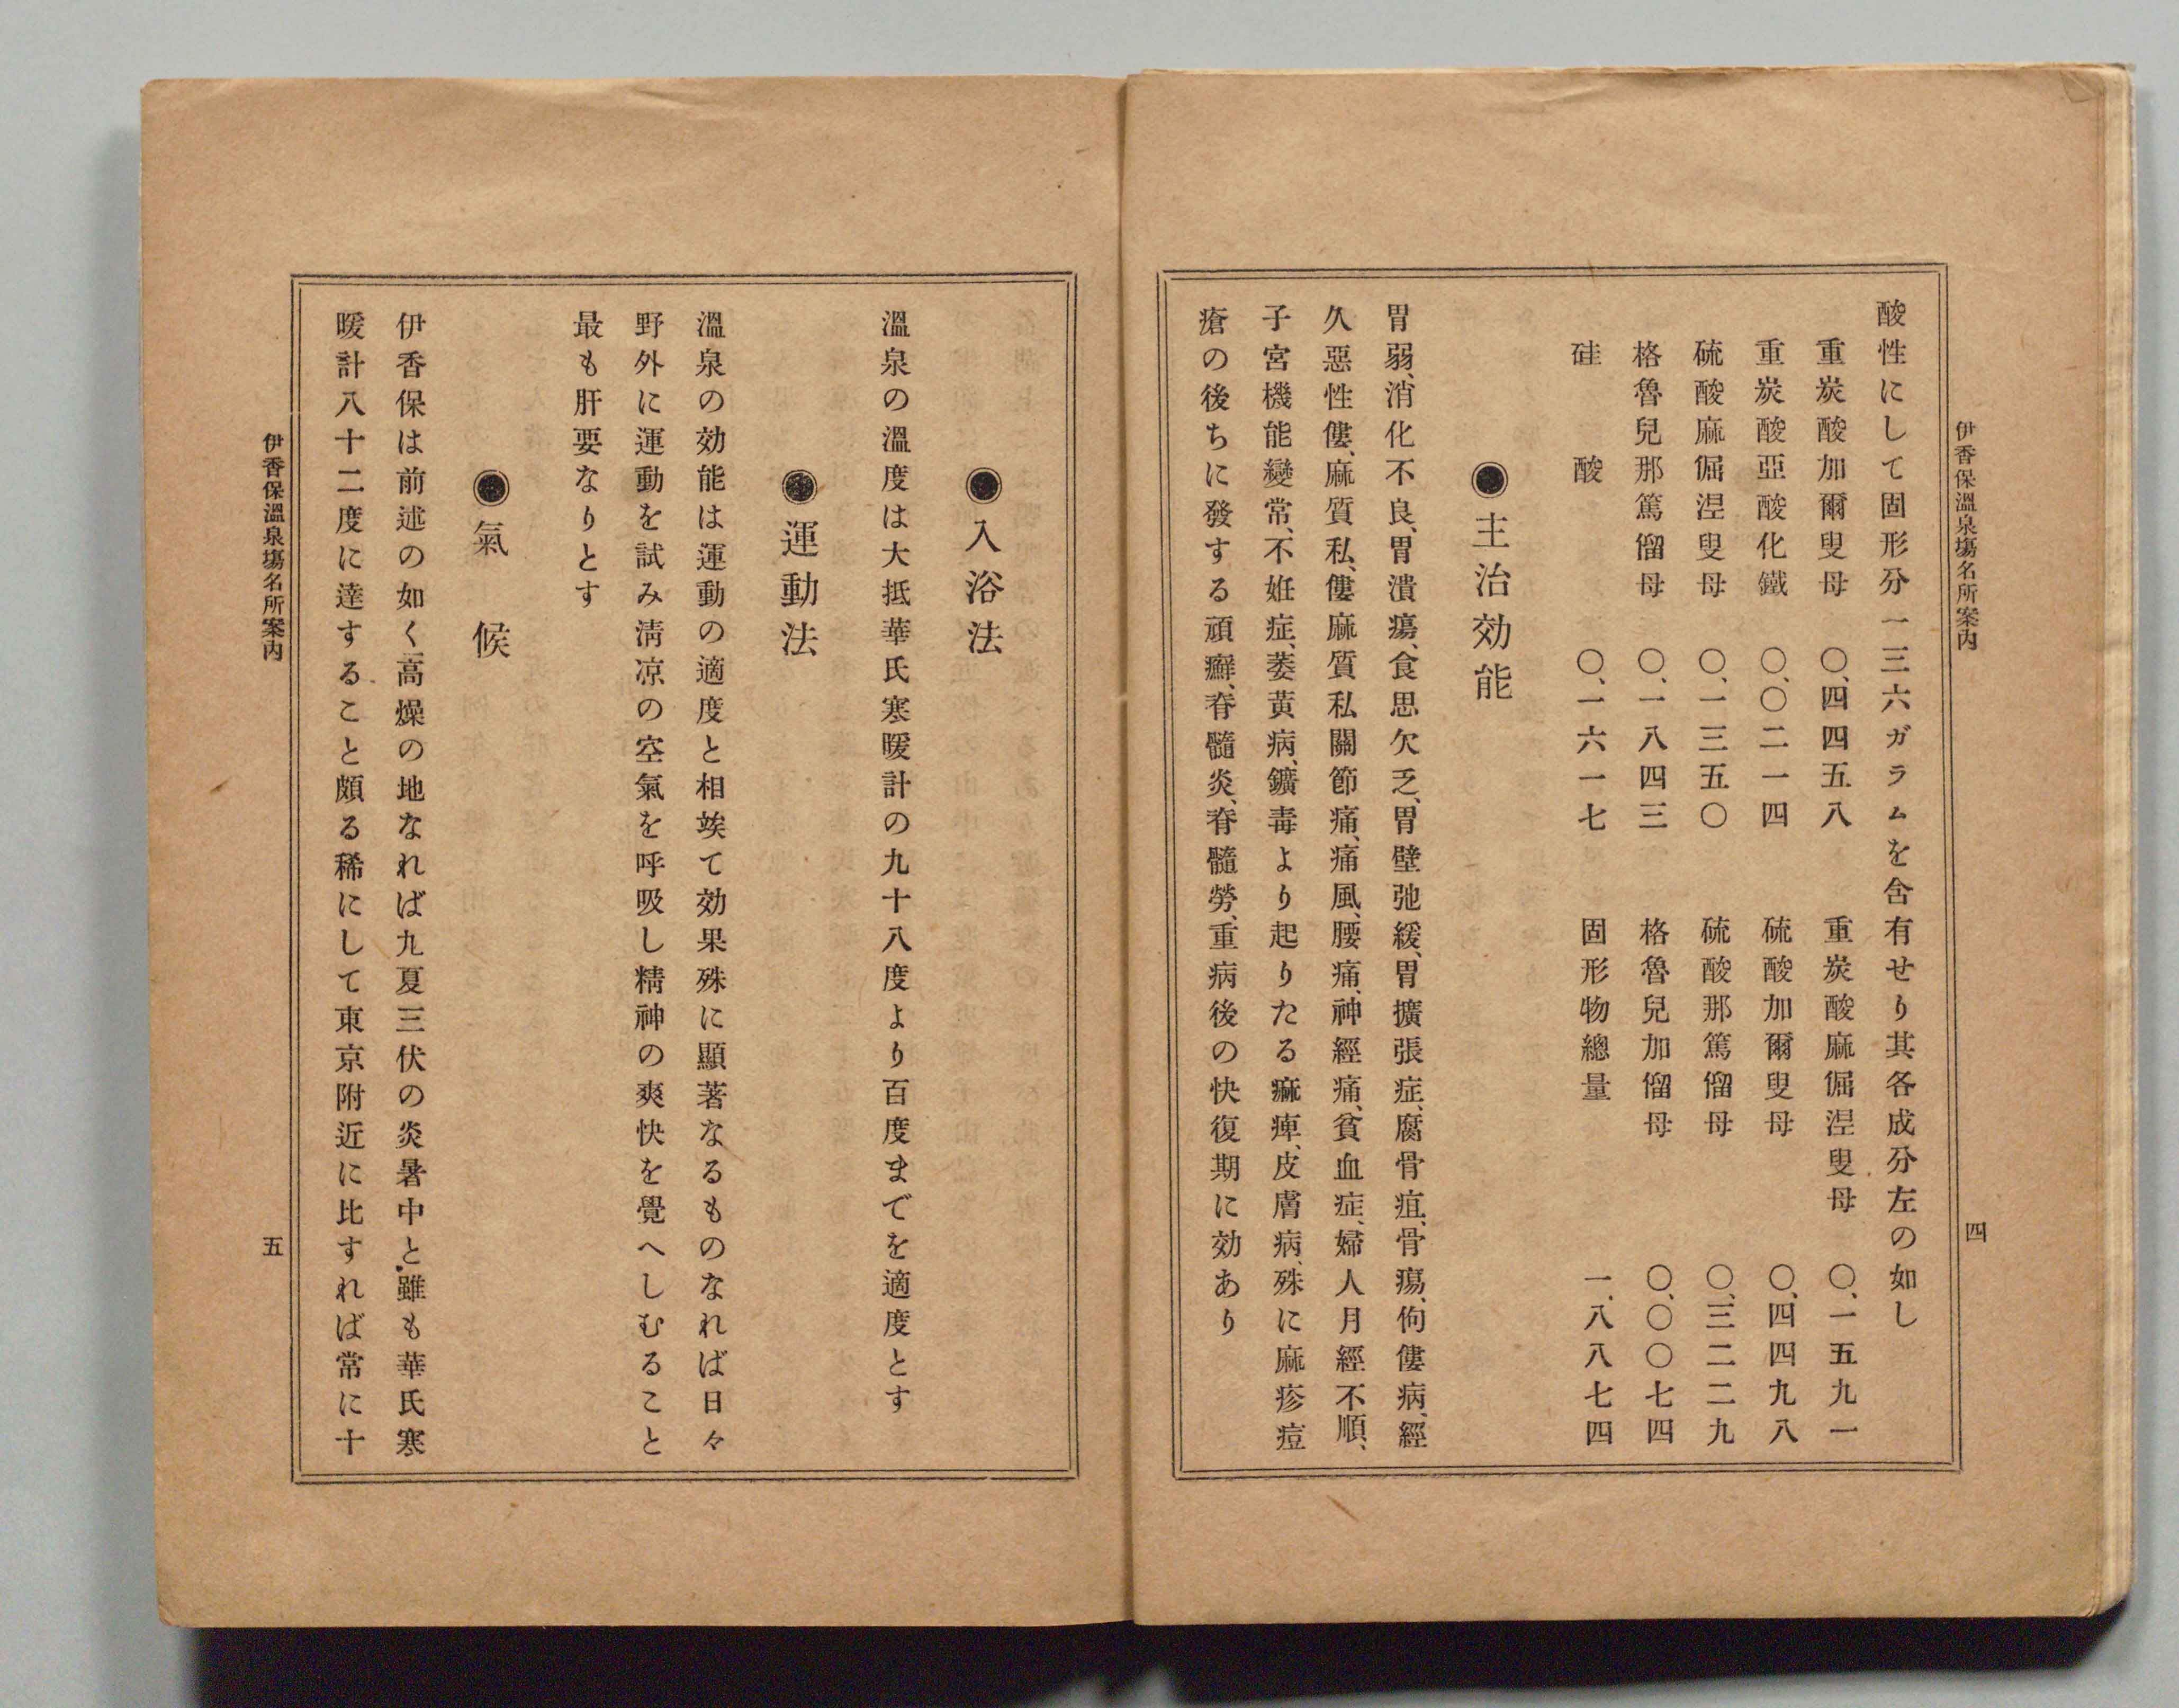 伊香保溫泉塲名所案內
四
酸性にして固形分一三六ガラムを含有せり其各成分左の如し
重炭酸加爾叟母　〇、四四五八　重炭酸麻倔涅叟母　〇、一五九一
重炭酸亞酸化鐵　〇、〇二一四　硫酸加爾叟母　〇、四四九八
硫酸麻倔涅叟母　〇、一三五〇　硫酸那篤倔母　〇、三二二九
格魯兒那篤倔母　〇、一八四三　格魯兒加倔母　〇、〇〇七四
硅酸　〇、一六一七　固形物總量　一、八八七四
◉主治効能
胃弱、消化不良、胃潰瘍、食思欠乏、胃壁弛緩、胃擴張症、腐骨疽、骨瘍、佝僂病、經
久惡性僂、麻質私、僂麻質私關節痛、痛風、腰痛、神經痛、貧血症、婦人月經不順、
子宮機能變常、不姙症、萎黃病、鑛毒より起りたる痲痺、皮膚病、殊に麻疹痘
瘡の後ちに發する頑癬、脊髓炎、脊髓勞、重病後の快復期に効あり
◉入浴法
溫泉の溫度は大抵華氏寒暖計の九十八度より百度までを適度とす
◉運動法
溫泉の効能は運動の適度と相竢て効果殊に顯著なるものなれば日々
野外に運動を試み淸凉の空氣を呼吸し精神の爽快を覺へしむること
最も肝要なりとす
◉氣候
伊香保は前述の如く高燥の地なれば九夏三伏の炎暑中と雖も華氏寒
暖計八十二度に達すること頗る稀にして東京附近に比すれば常に十
伊香保溫泉塲名所案內
五